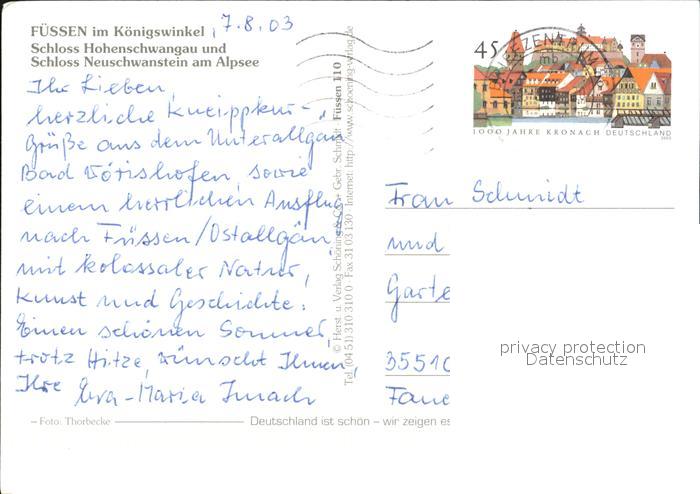 FÜSSEN im Königswinkel , 7.8.03
Schloss Hohenschwangau und
Schloss Neuschwanstein am Alpsee
Ihr Lieben,
herzliche Kneippkur-
Grüße aus dem Unterallgäu
Bad Wörishofen, sowie
einem herrlichen Ausflug
nach Füssen/Ostallgäu
mit kolossaler Natur,
Kunst und Geschichte.
Einen schönen Sommer,
trotz Hitze, wünscht Ihnen,
Ihre Eva-Maria
– Foto: Thorbecke
Deutschland ist schön – wir zeigen es
© Herst. u. Verlag Schöning & Co + Gebr. Schmidt Füssen 110
Tel. (04 51) 310 310 0 · Fax 31 03 130 · Internet: http://www.schoening-verlag.de
45
1000 JAHRE KRONACH DEUTSCHLAND
2003
Frau Schmidt
und
Garte
3551
privacy protection
Datenschutz